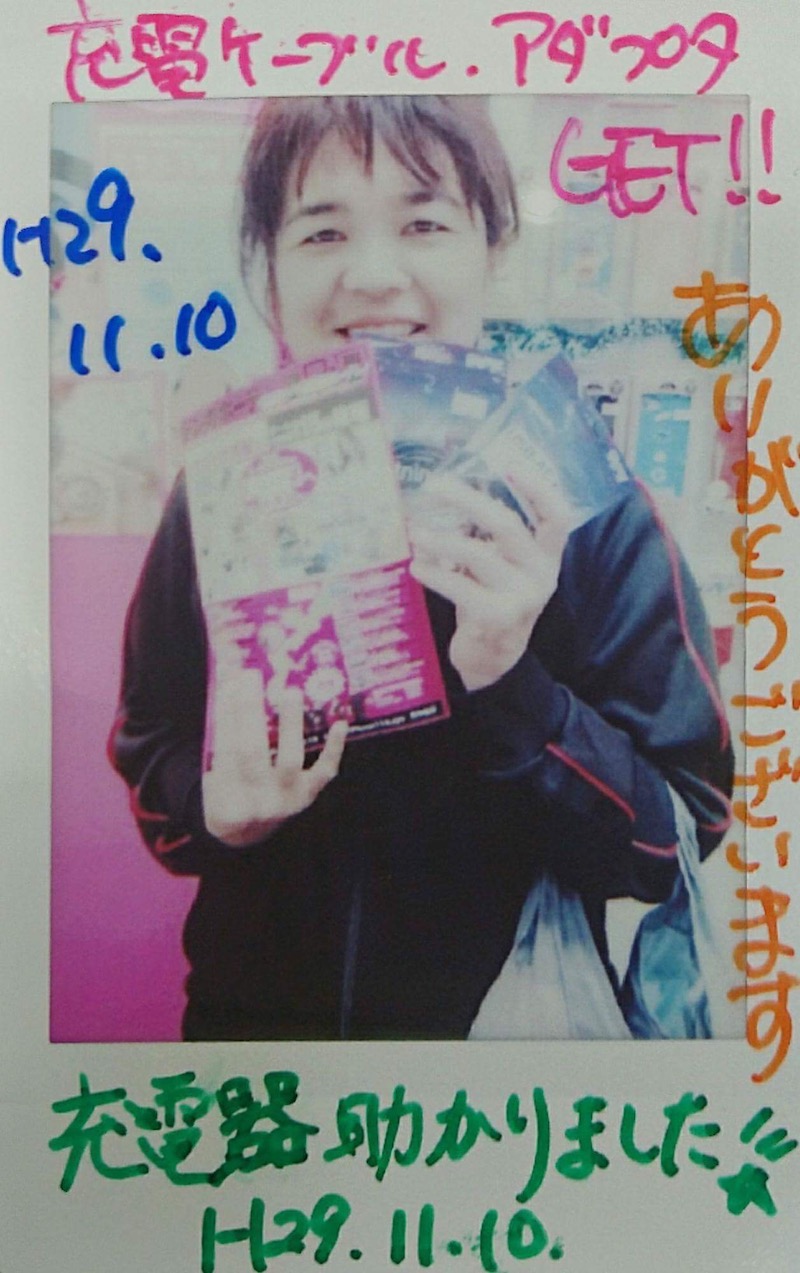 充電ケーブル.アダプタ
GET!!
H29.
11.10
ありがとうございます
充電器助かりました
H29.11.10.